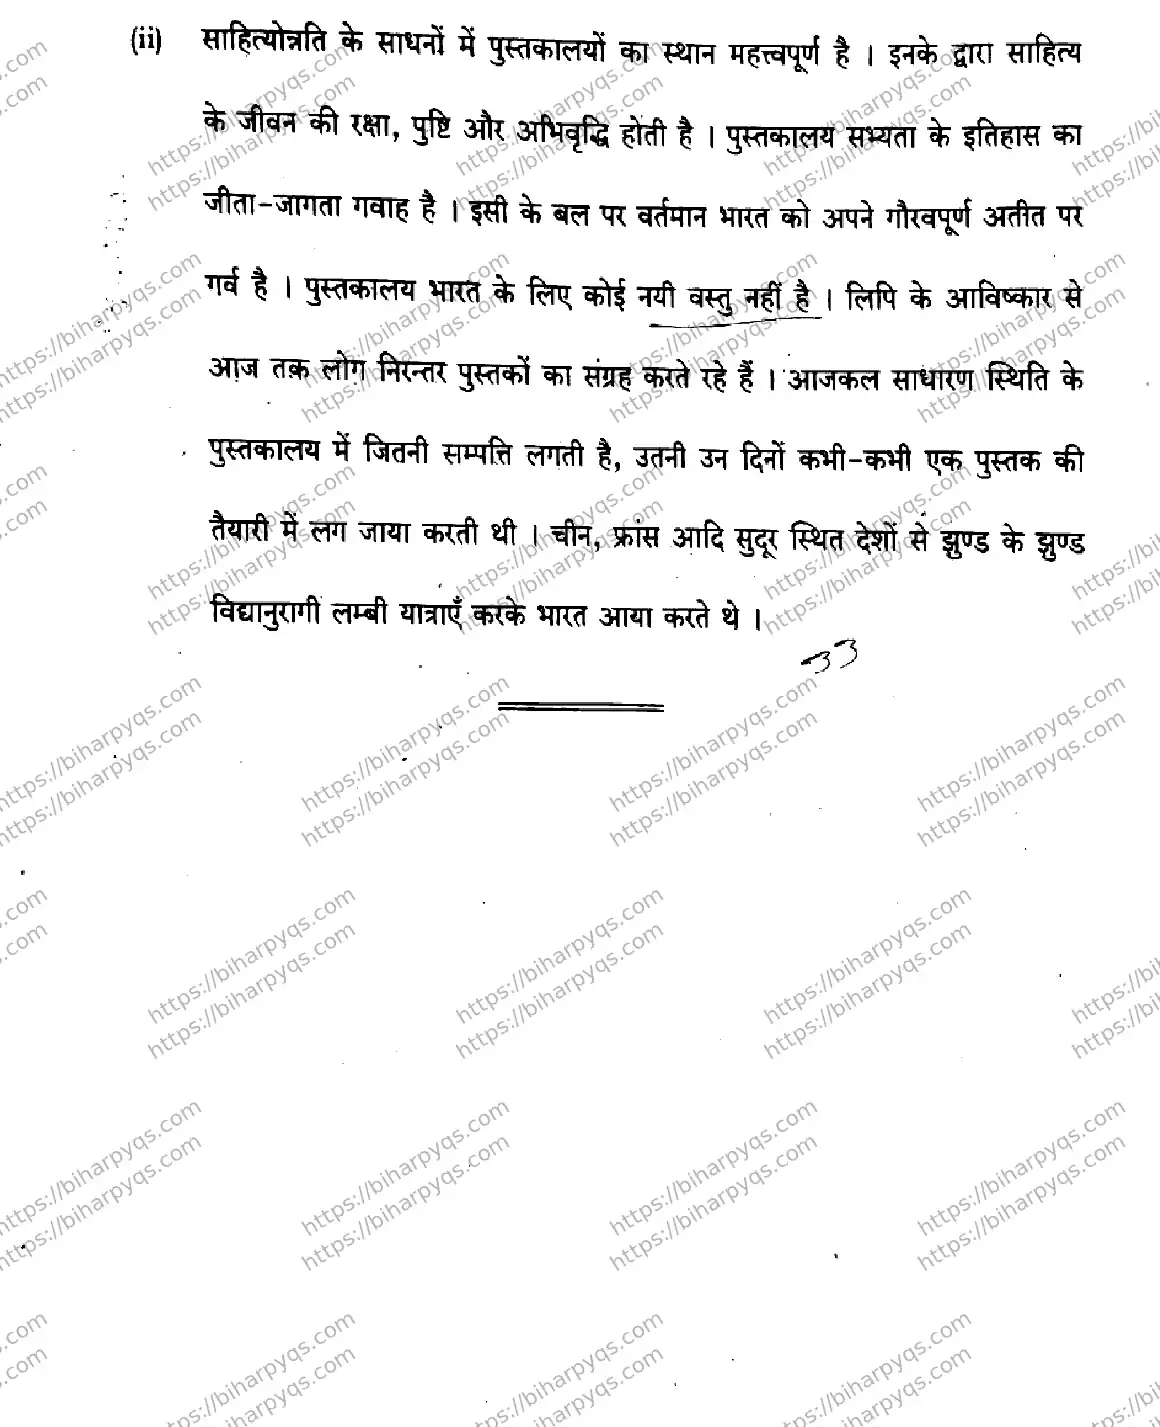 (ii) साहित्योन्नति के साधनों में पुस्तकालयों का स्थान महत्त्वपूर्ण है । इनके द्वारा साहित्य
के जीवन की रक्षा, पुष्टि और अभिवृद्धि होती है । पुस्तकालय सभ्यता के इतिहास का
जीता-जागता गवाह है । इसी के बल पर वर्तमान भारत को अपने गौरवपूर्ण अतीत पर
गर्व है । पुस्तकालय भारत के लिए कोई नयी वस्तु नहीं है । लिपि के आविष्कार से
आज तक लोग निरन्तर पुस्तकों का संग्रह करते रहे हैं । आजकल साधारण स्थिति के
पुस्तकालय में जितनी सम्पत्ति लगती है, उतनी उन दिनों कभी-कभी एक पुस्तक की
तैयारी में लग जाया करती थी । चीन, फ्रांस आदि सुदूर स्थित देशों से झुण्ड के झुण्ड
विद्यानुरागी लम्बी यात्राएँ करके भारत आया करते थे ।
33
https://biharpyqs.com